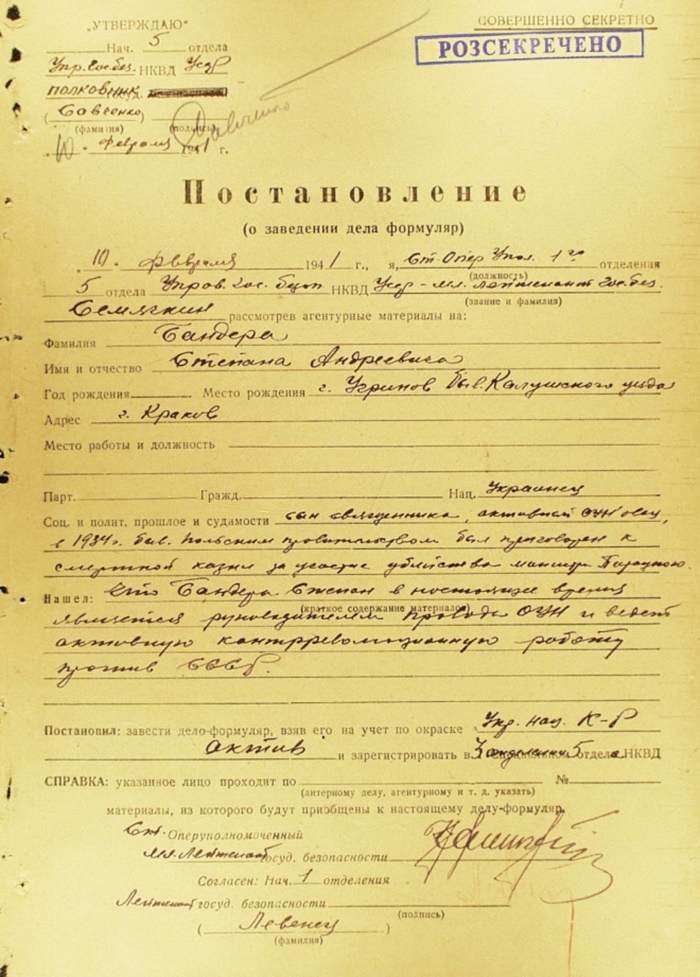 „УТВЕРЖДАЮ"
СОВЕРШЕННО СЕКРЕТНО
РОЗСЕКРЕЧЕНО
Нач. 5 отдела
Упр. Гос. без. НКВД Усср
полковник
(Савченко)
(фамилия) (подпись)
10 февраля 1941 г.
Постановление
(о заведении дела формуляр)
10 февраля 1941 г., я, Ст. Опер Упол. 1го отделения
(должность)
5 отдела Упров. гос. безоп НКВД Усср - мл. лейтенант гос. без.
(звание и фамилия)
рассмотрев агентурные материалы на:
Фамилия Бандера
Имя и отчество Степана Андреевича
Год рождения Место рождения г. Угринов был. Калушского уезда
Адрес г. Краков
Место работы и должность
Парт. Гражд. Нац. Украинец
Соц. и полит. прошлое и судимости сын священника, активный ОУН'овец,
в 1934 г. быв. Польским правительством был приговорен к
смертной казни за участие убийства министра Перацкого.
Нашел: Что Бандера Степан в настоящее время
(краткое содержание материалов)
является руководителем провода ОУН и ведет
активную контрреволюционную работу
против СССР.
Постановил: завести дело-формуляр, взяв его на учет по окраске Укр. нац. К-Р
актив и зарегистрировать в 3 отделении 5 отдела НКВД
СПРАВКА: указанное лицо проходит по №
(литерному делу, агентурному и т. д. указать)
материалы, из которого будут приобщены к настоящему делу-формуляр.
Ст. Оперуполномоченный
мл. Лейтенант госуд. безопасности
Согласен: Нач. 1 отделения
Лейтенант госуд. безопасности
(подпись)
(Левенец)
(фамилия)